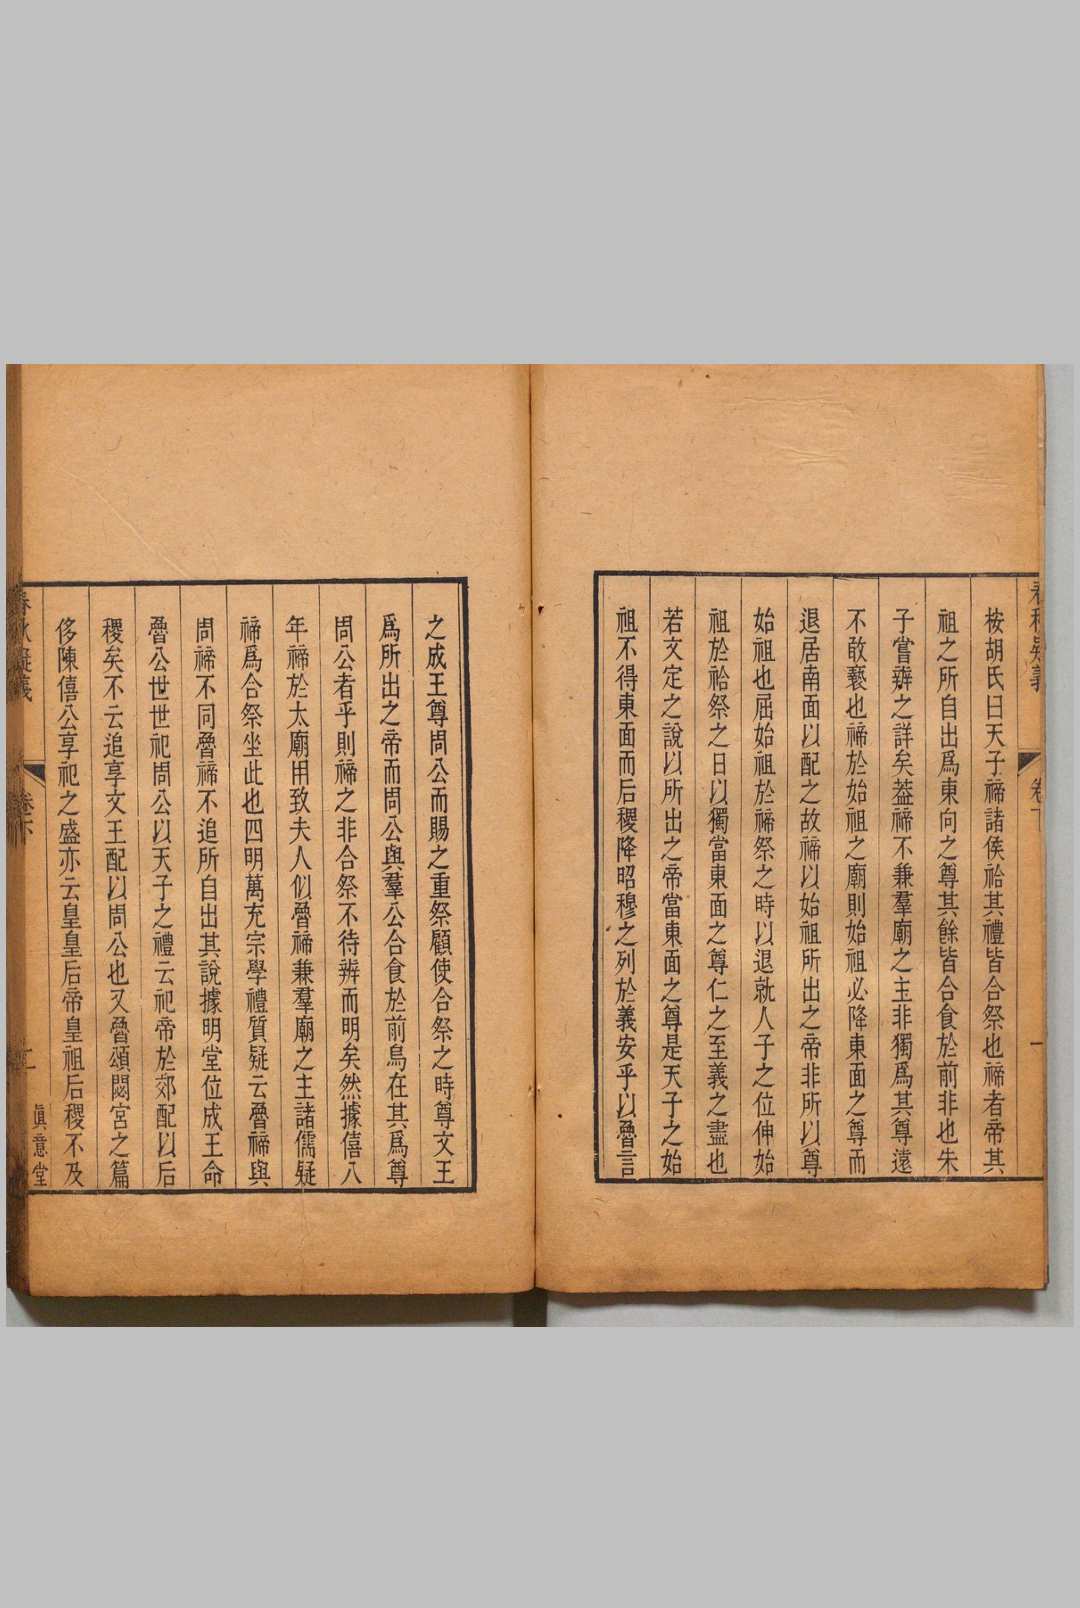 春秋疑義
卷下
一
按胡氏曰天子禘諸侯祫其禮皆合祭也禘者帝其
祖之所自出爲東向之尊其餘皆合食於前非也朱
子嘗辨之詳矣葢禘不兼羣廟之主非獨爲其尊遠
不敢褻也禘於始祖之廟則始祖必降東面之尊而
退居南面以配之故禘以始祖所出之帝非所以尊
始祖也屈始祖於禘祭之時以退就人子之位伸始
祖於祫祭之日以獨當東面之尊仁之至義之盡也
若文定之說以所出之帝當東面之尊是天子之始
祖不得東面而后稷降昭穆之列於義安乎以魯言
之成王尊周公而賜之重祭顧使合祭之時尊文王
爲所出之帝而周公與羣公合食於前烏在其爲尊
周公者乎則禘之非合祭不待辨而明矣然據僖八
年禘於太廟用致夫人似魯禘兼羣廟之主諸儒疑
禘爲合祭坐此也四明萬充宗學禮質疑云魯禘與
周禘不同魯禘不追所自出其說據明堂位成王命
魯公世世祀周公以天子之禮云祀帝於郊配以后
稷矣不云追享文王配以周公也又魯頌閟宮之篇
侈陳僖公享祀之盛亦云皇皇后帝皇祖后稷不及
春秋疑義
卷下
二
眞意堂